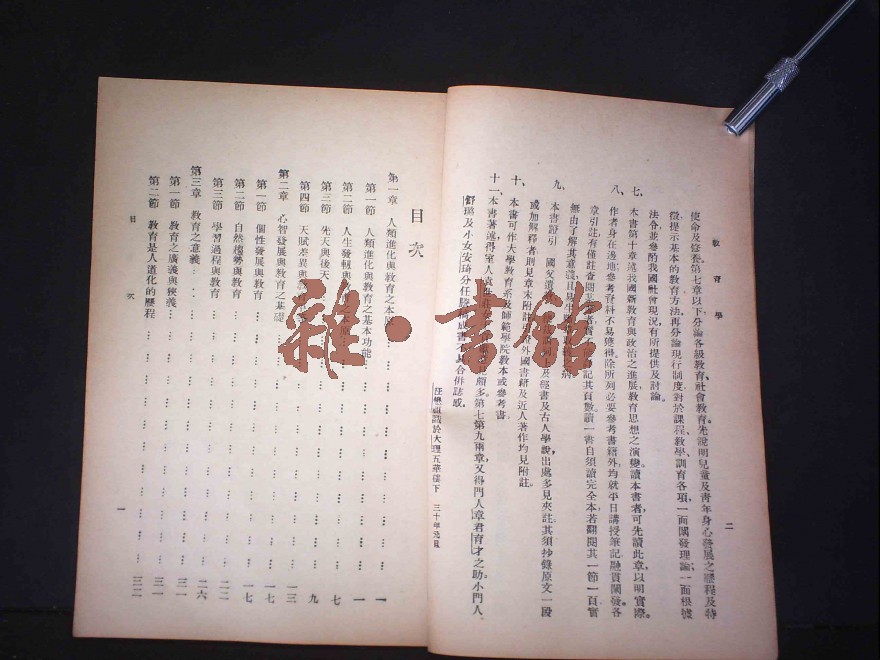 教育學
二
使命及修養。第七章以下分論各級教育，社會教育。先說明兒童及青年身心發展之歷程及特
徵，提示基本的教育方法，再分論現行制度對於課程、教學、訓育各項，一面闡發理論，一面根據
法令，並參酌我國社會現況，有所提供及討論。
七、本書第十章述我國新教育與政治之進展，教育思想之演變，讀本書者，可先讀此章，以明實際。
八、作者身在邊地，參考資料不易獲得，除所列必要參考書籍外，均就平日講授筆記融貫闡發。各
章引註有僅註查閱某
記其頁數，讀一書自須讀完全本，若翻閱其一節一頁，實
無由了解其意義，且易生
病。
九、本書證引 國父遺
及經書及古人學說，出處多見夾註，其須抄錄原文一段
或加解釋者，則見章末附註
外國書籍及近人著作均見附註。
十、本書可作大學教育系及師範學院教本或參考書。
十一、本書著述，得室人
頗多。第七第九兩章，又得門人章君育才之助，小門人
及小女安琦分任
成書不易，合併誌感。
識於大理五華樓下 三十年元旦
目次
第一章 人類進化與教育之本
一
第一節 人類進化與教育之基本功能 一
第二節 人生發軔與
之本原 七
第三節 先天與後天 九
第四節 天賦差異與教育
一三
第二章 心智發展與教育之基礎 一七
第一節 個性發展與教育 一七
第二節 自然趨勢與教育 二二
第三節 學習過程與教育 二六
第三章 教育之意義 三一
第一節 教育之廣義與狹義 三一
第二節 教育是人道化的歷程 三二
目次
一
雜·書館